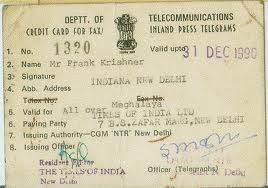 DEPTT. OF TELECOMMUNICATIONS
CREDIT CARD FOR FAX/ INLAND PRESS TELEGRAMS
1. No. 1320 Valid upto 31 DEC 1990
2. Name Mr Frank Krishner
3. Signature
INDIANA NEW DELHI
4. Abb. Address
Telex No. Fax No.
5. Valid for All over Meghalaya
TIMES OF INDIA LTD
6. Paying Party 7 B.S.ZAFAR MARG, NEW DELHI
7. Issuing Authority-CGM 'NTR' New Delhi
8. Issuing Officer
Resident
THE TIMES OF INDIA
New Delhi
Officer (Telegraphs) Delhi